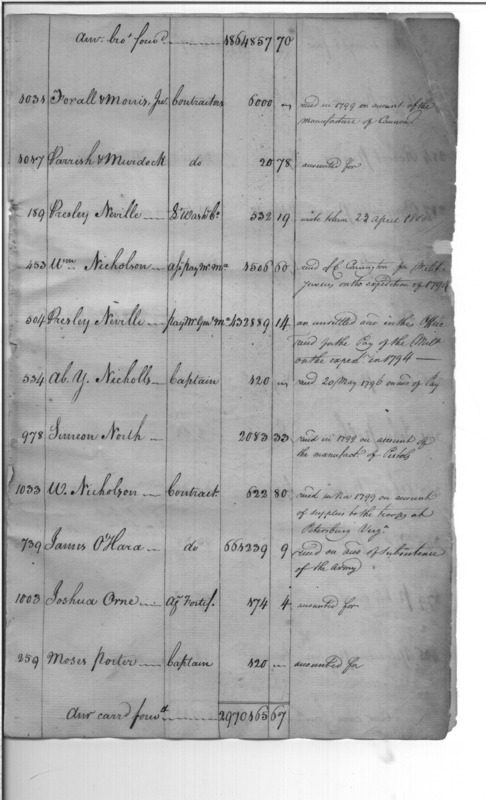 Amt. bro.t forw.d 1864857 70
Forall & Morris, Jr. Contractors 6000 — rec'd in 1799 on account of the
manufacture of Cannon
Parrish & Murdock do 20 78 accounted for
189 Presley Neville 332 19 wrote them 22 April
453 Wm. Nicholson 60 rec'd of E Carrington for
on the expedition of 1794
504 Presley Neville 432889 14 an unsettled acc. in the Office
rec'd for the Pay of the Milit.
on the exped. in 1794 —
534 Ab. Y. Nicholls Captain 120 — rec'd 20 May 1796 on acc. of Pay
978 Simeon North 2083 33 rec'd in 1799 on account of
the manufact. of Pistols
1033 W. Nicholson Contract. 622 80 rec'd in 1799 on account
of supplies to the troops at
Petersburg Virg.a
739 James O'Hara do 661239 9 rec'd on acc. of subsistence
of the army
1003 Joshua Orne Ag.t Fortif. 174 4 accounted for
259 Moses Porter Captain 120 — accounted for
Amt. carr.d forw.d 2970165 67